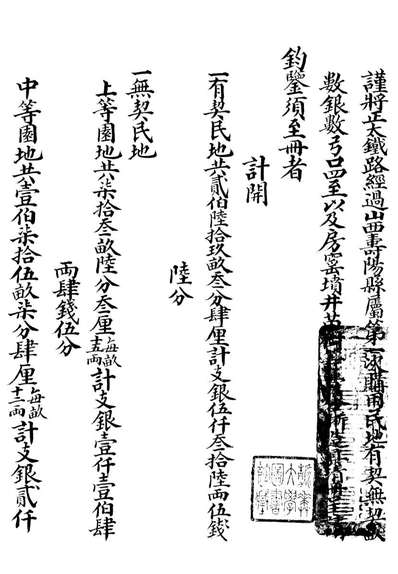 謹將正太鐵路經過山西壽陽縣屬第一次購用民地有契無契畝
數銀數弓口四至以及房窰墳井苗
鈞鑒須至冊者
計開
一有契民地共貳伯陸拾玖畝叁分肆厘計支銀伍仟叁拾陸兩伍錢
陸分
一無契民地
上等園地共柒拾叁畝陸分叁厘每畝十五兩計支銀壹仟壹伯肆
兩肆錢伍分
中等園地共壹伯柒拾伍畝柒分肆厘每畝十二兩計支銀貳仟